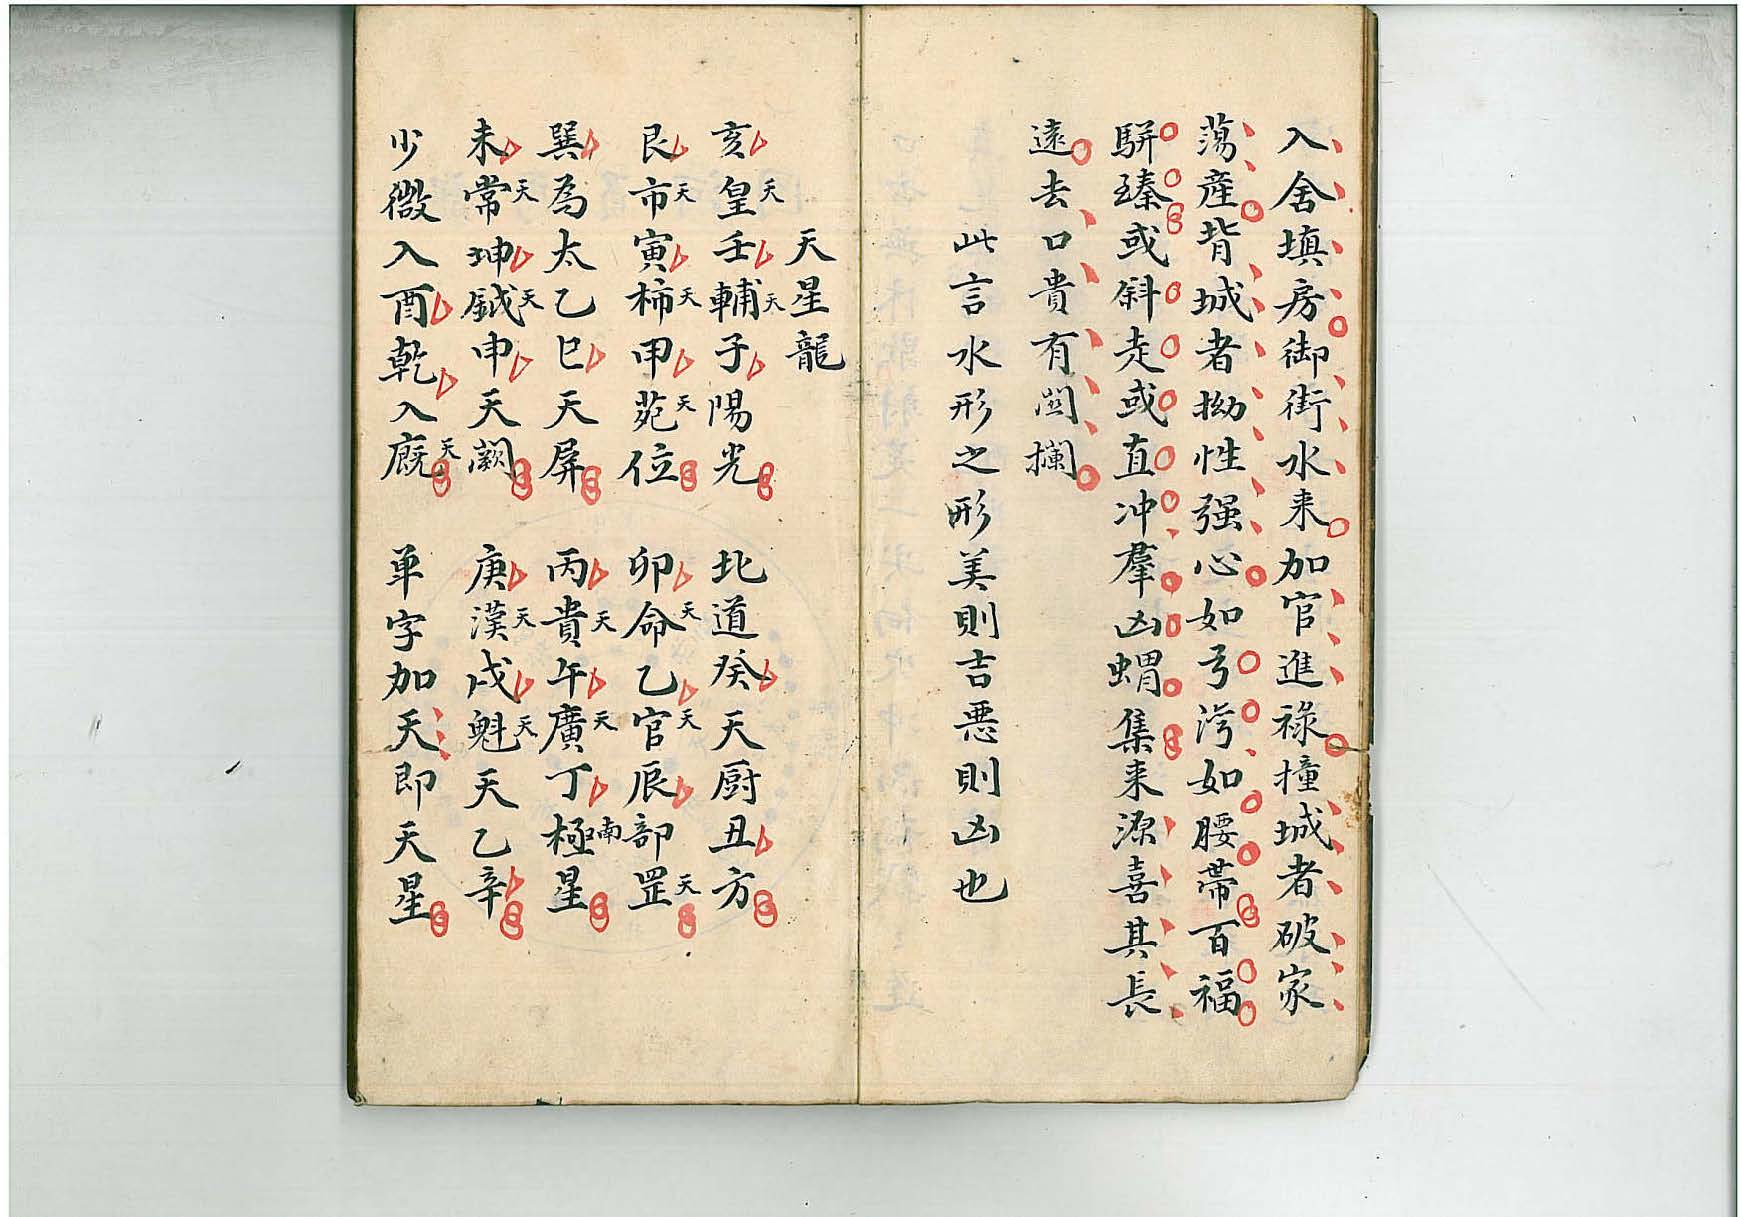 入舍填房御街水来加官進祿撞城者破家
蕩產背城者拗性强心如弓湾如腰帶百福
駢臻或斜走或直冲羣凶蝟集来源喜其長
遠去口貴有関攔
此言水形之形美則吉惡則凶也
天星龍
亥皇天壬輔天子陽光 北道癸天厨丑方
艮市天寅柿天甲苑天位 卯命天乙官天辰部罡天
巽為太乙巳天屏 丙貴天午廣天丁極南星
未常天坤鉞天申天闕 庚漢天戌魁天天乙辛
少微入酉乾入廐天 单字加天即天星